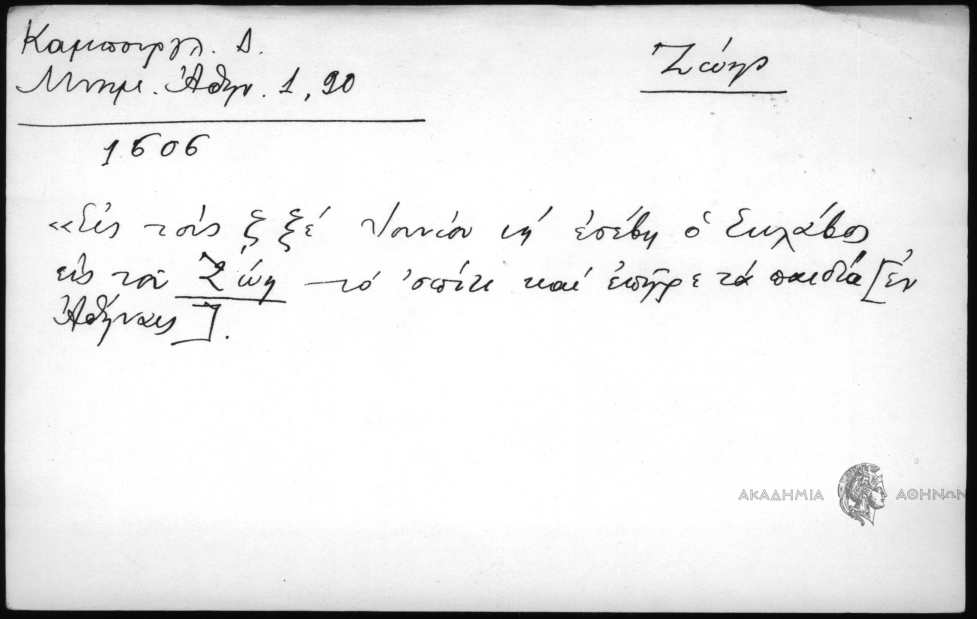 Καμπουργλ. Δ.
Μνημ. Ἀθην. 1, 90
Ζώης
1606
«Εἰς τοὺς ͵αχϛ Ἰουνίου ιή ἐσέβη ὁ Σκλάβος
εἰς τοῦ Ζώη τὸ ὀσπίτι καὶ ἐπῆρε τὰ παιδία [ἐν
Ἀθήναις].
ΑΚΑΔΗΜΙΑ ΑΘΗΝΩΝ